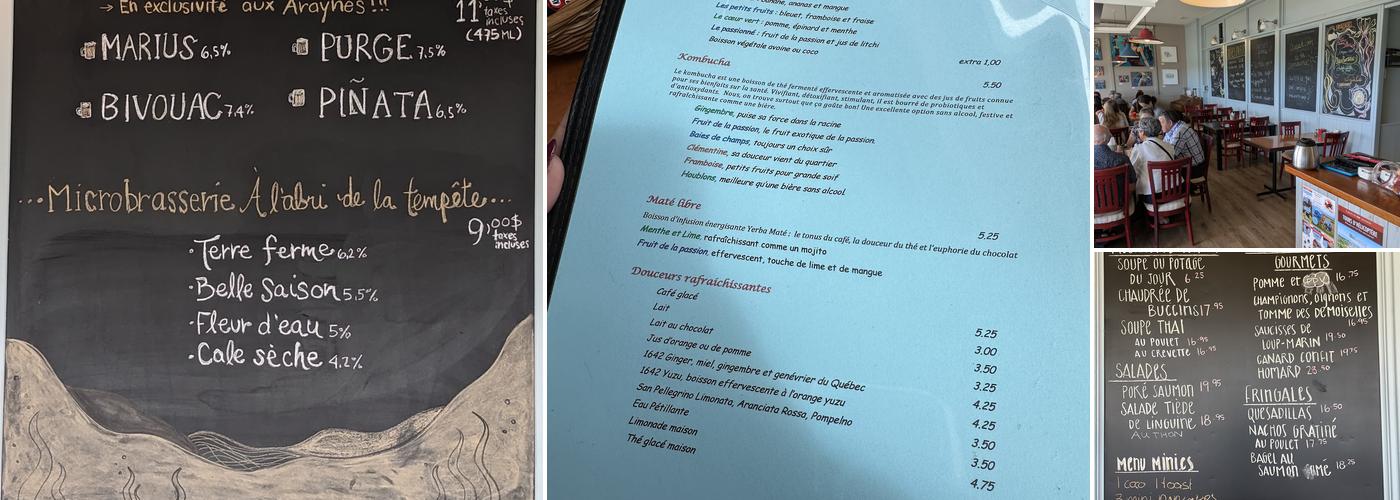 → En exclusivité aux Araynes!!!
11
taxes
incluses
(475 ML)
MARIUS 6,5%
PURGE 7,5%
BIVOUAC 7,4%
PIÑATA 6,5%
...Microbrasserie À l'abri de la tempête...
9,00$
taxes
incluses
• Terre ferme 6,2%
• Belle Saison 5,5%
• Fleur d'eau 5%
• Cale sèche 4,2%
ananas et mangue
Les petits fruits : bleuet, framboise et fraise
Le cœur vert : pomme, épinard et menthe
Le passionné : fruit de la passion et jus de litchi
Boisson végétale avoine ou coco
extra 1,00
Kombucha
5.50
Le kombucha est une boisson de thé fermenté effervescente et aromatisée avec des jus de fruits connue
pour ses bienfaits sur la santé. Vivifiant, détoxifiant, stimulant, il est bourré de probiotiques et
d'antioxydants. Nous, on trouve surtout que ça goûte bon! Une excellente option sans alcool, festive et
rafraîchissante comme une bière.
Gingembre, puise sa force dans la racine
Fruit de la passion, le fruit exotique de la passion.
Baies de champs, toujours un choix sûr
Clémentine, sa douceur vient du quartier
Framboise, petits fruits pour grande soif
Houblons, meilleure qu'une bière sans alcool
Maté libre
5.25
Boisson d'infusion énergisante Yerba Maté : le tonus du café, la douceur du thé et l'euphorie du chocolat
Menthe et Lime, rafraîchissant comme un mojito
Fruit de la passion, effervescent, touche de lime et de mangue
Douceurs rafraichissantes
Café glacé 5.25
Lait 3.00
Lait au chocolat 3.50
Jus d'orange ou de pomme 3.25
1642 Ginger, miel, gingembre et genévrier du Québec 4.25
1642 Yuzu, boisson effervescente à l'orange yuzu 4.25
San Pellegrino Limonata, Aranciata Rossa, Pompelmo 3.50
Eau Pétillante 3.50
Limonade maison 4.75
Thé glacé maison
SOUPE OU POTAGE
DU JOUR 6 25
CHAUDRÉE DE
BUCCINS 17.95
SOUPE THAI
AU POULET 16.95
AU CREVETTE 16.95
SALADES
POKÉ SAUMON 19 95
SALADE TIÈDE
DE LINGUINE 18.95
AU THON
MENU MINIES
1 coco 1 toast
GOURMETS
POMME ET 16.75
CHAMPIGNONS, OIGNONS ET
TOMME DES DEMOISELLES
16.95
SAUCISSES DE
LOUP-MARIN 19.50
CANARD CONFIT 19.75
HOMARD 23.50
FRINGALES
QUESADILLAS 16.50
NACHOS GRATINÉ
AU POULET 17.75
BAGEL AU
SAUMON FUMÉ 18.25